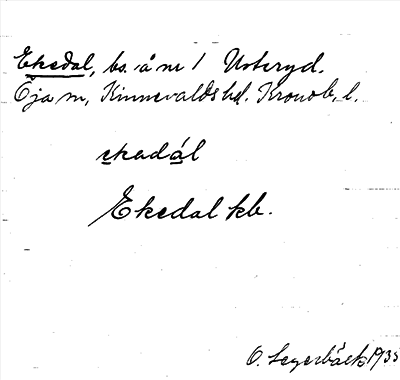 Ekedal, bs. å nr 1 Notteryd.
Öja sn, Kinnevalds hd. Kronob. l.
ekadál
Ekedal kb.
O. Segerbäck 1935